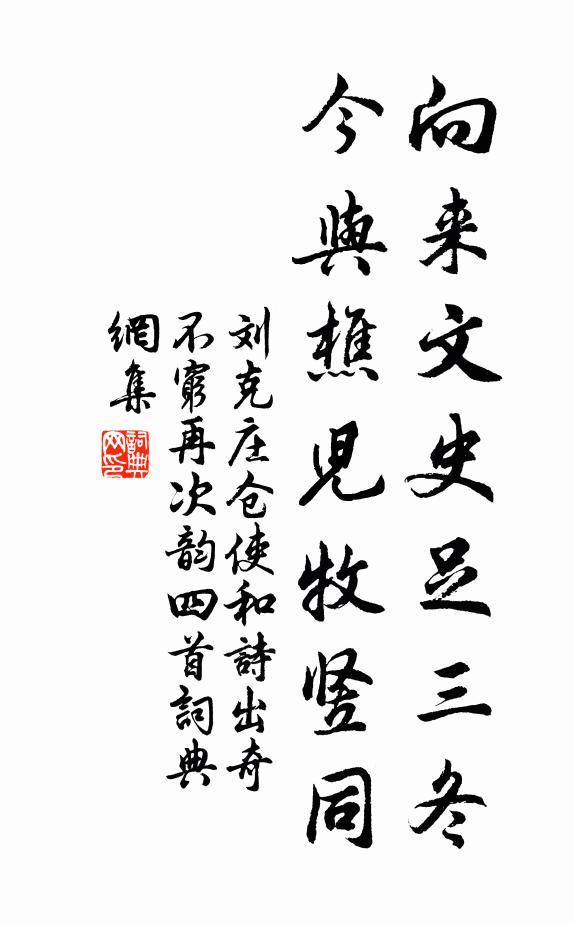 向来文史足三冬
今與樵児牧竖同
刘克庄仓使和詩出奇
不窮再次韵四首詞典
網集
詞典网印